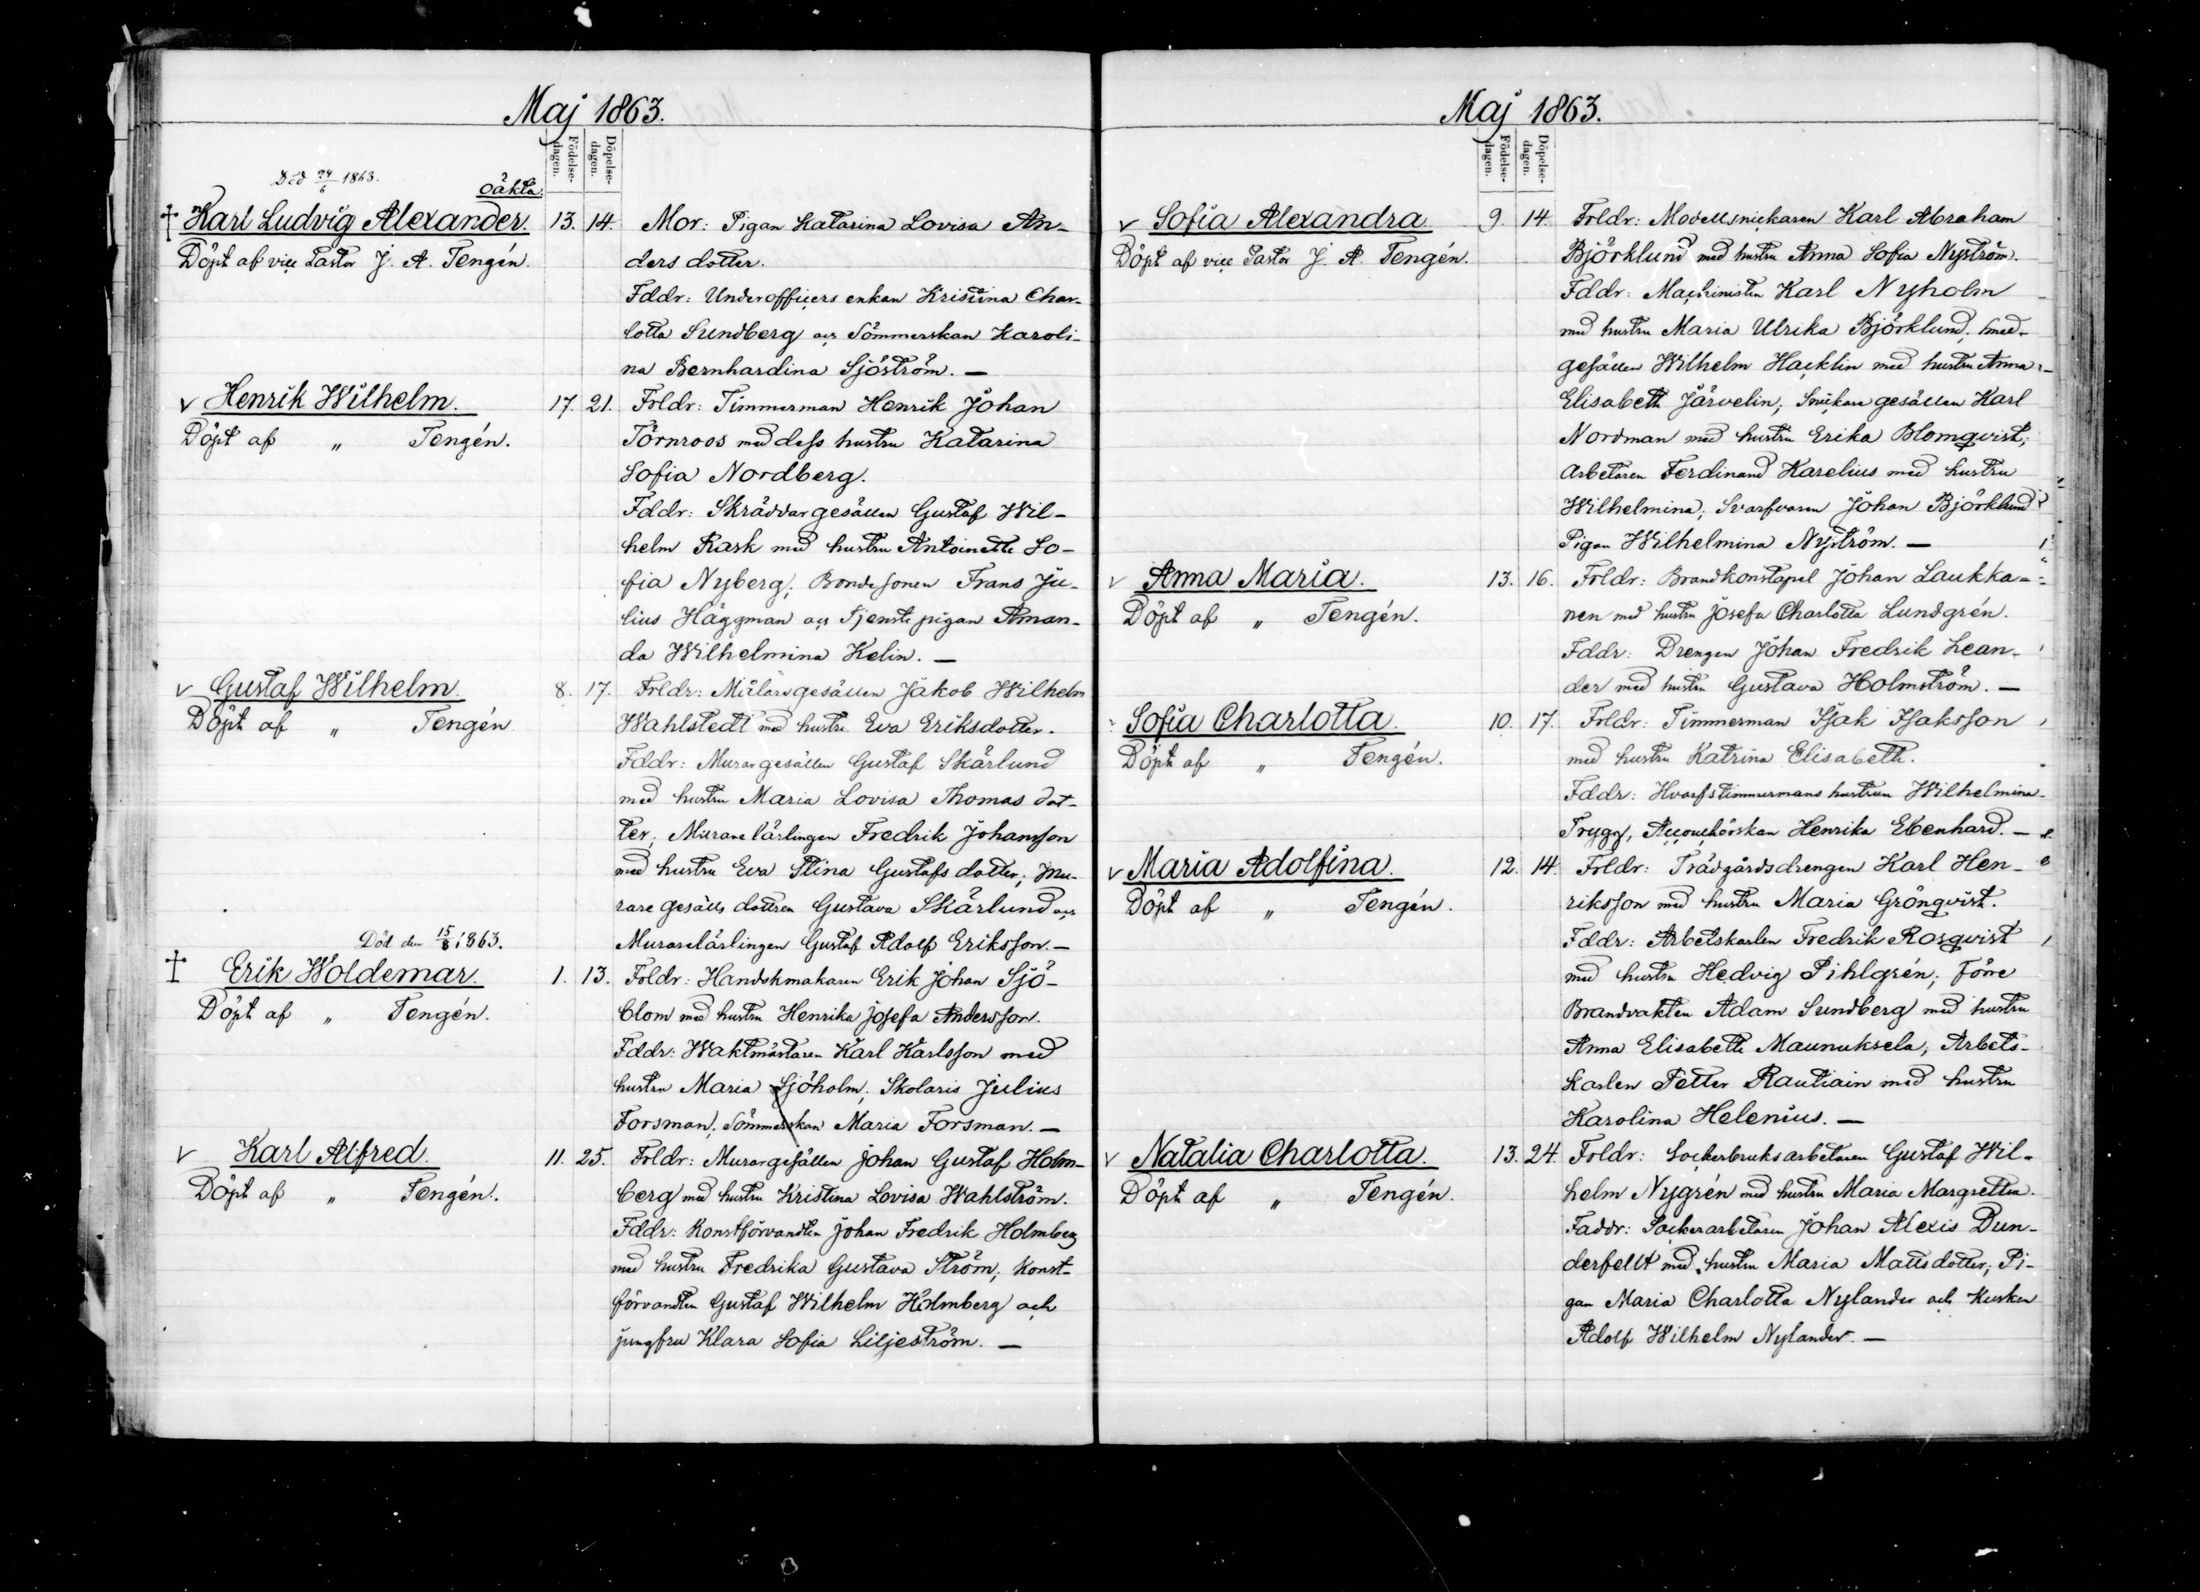 Maj 1863.
Födelse-
dagen.
Döpelse-
dagen.
Död 24/6 1863.
oäkta.
Karl Ludvig Alexander. 13. 14. Mor: Pigan Katarina Lovisa An-
Döpt af vice Pastor J. A. Tengén. ders dotter.
Fddr: Underofficers enkan Kristina Char-
lotta Sundberg och Sömmerskan Karoli-
na Bernhardina Sjöström. —
v Henrik Wilhelm. 17. 21. Frldr: Timmerman Henrik Johan
Döpt af „ Tengén. Törnroos med dess hustru Katarina
Sofia Nordberg.
Fddr: Skräddargesällen Gustaf Wil-
helm Rask med hustru Antoinette So-
fia Nyberg; Bondesonen Frans Ju-
lius Häggman och Tjenstepigan Aman-
da Wilhelmina Kelin. —
v Gustaf Wilhelm. 8. 17. Frldr: Målaregesällen Jakob Wilhelm
Döpt af „ Tengén Wahlstedt med hustru Eva Eriksdotter.
Fddr: Muraregesällen Gustaf Skärlund
med hustru Maria Lovisa Thomas dot-
ter; Murare lärlingen Fredrik Johansson
med hustru Eva Stina Gustafs dotter; Mu-
rare gesälls dottren Gustava Skärlund och
Död den 15/8 1863. Murarelärlingen Gustaf Adolf Eriksson. —
Erik Woldemar. 1. 13. Foldr: Handskmakaren Erik Johan Sjö-
Döpt af „ Tengén. blom med hustru Henrika Josefa Andersson.
Fddr: Waktmästaren Karl Karlsson med
hustru Maria Sjöholm; Skolaris Julius
Forsman; Sömmerskan Maria Forsman. —
v Karl Alfred. 11. 25. Frldr: Muraregesällen Johan Gustaf Holm-
Döpt af „ Tengén. berg med hustru Kristina Lovisa Wahlström.
Fddr: Konstförvandten Johan Fredrik Holmberg
med hustru Fredrika Gustava Ström; Konst-
förvandten Gustaf Wilhelm Holmberg och
jungfru Klara Sofia Liljeström. —
Maj 1863.
Födelse-
dagen.
Döpelse-
dagen.
v Sofia Alexandra 9. 14. Frldr: Modellsnickaren Karl Abraham
Döpt af vice Pastor J. A. Tengén. Björklund med hustru Anna Sofia Nyström.
Fddr: Machinisten Karl Nyholm
med hustru Maria Ulrika Björklund; Smed-
gesällen Wilhelm Hacklin med hustru Anna
Elisabeth Järvelin; Snickare gesällen Karl
Nordman med hustru Erika Blomqvist;
Arbetaren Ferdinand Karelius med hustru
Wilhelmina; Svarfvaren Johan Björklund
Pigan Wilhelmina Nyström. —
v Anna Maria. 13. 16. Frldr: Brandkonstapel Johan Laukka-
Döpt af „ Tengén. nen med hustru Josefa Charlotta Lundgrén.
Fddr: Drengen Johan Fredrik Lean-
der med hustru Gustava Holmström. —
Sofia Charlotta. 10. 17. Frldr: Timmerman Isak Isaksson
Döpt af „ Tengén. med hustru Katrina Elisabeth.
Fddr: Hvarfstimmermans hustrun Wilhelmina
Trygg, Henrika Ebenhard. —
v Maria Adolfina. 12. 14. Frldr: Trädgårdsdrengen Karl Hen-
Döpt af „ Tengén. riksson med hustru Maria Grönqvist.
Fddr: Arbetskarlen Fredrik Rosqvist
med hustru Hedvig Pihlgrén; Förre
Brandvakten Adam Sundberg med hustru
Anna Elisabeth Maunuksela; Arbets-
karlen Petter Rautiain med hustru
Karolina Helenius. —
v Natalia Charlotta. 13. 24. Foldr: Sockerbruksarbetaren Gustaf Wil-
Döpt af „ Tengén. helm Nygrén med hustru Maria Margretha.
Faddr: Sockerarbetaren Johan Alexis Dun-
derfellt med hustru Maria Mattsdotter; Pi-
gan Maria Charlotta Nylander och Kusken
Adolf Wilhelm Nylander. —